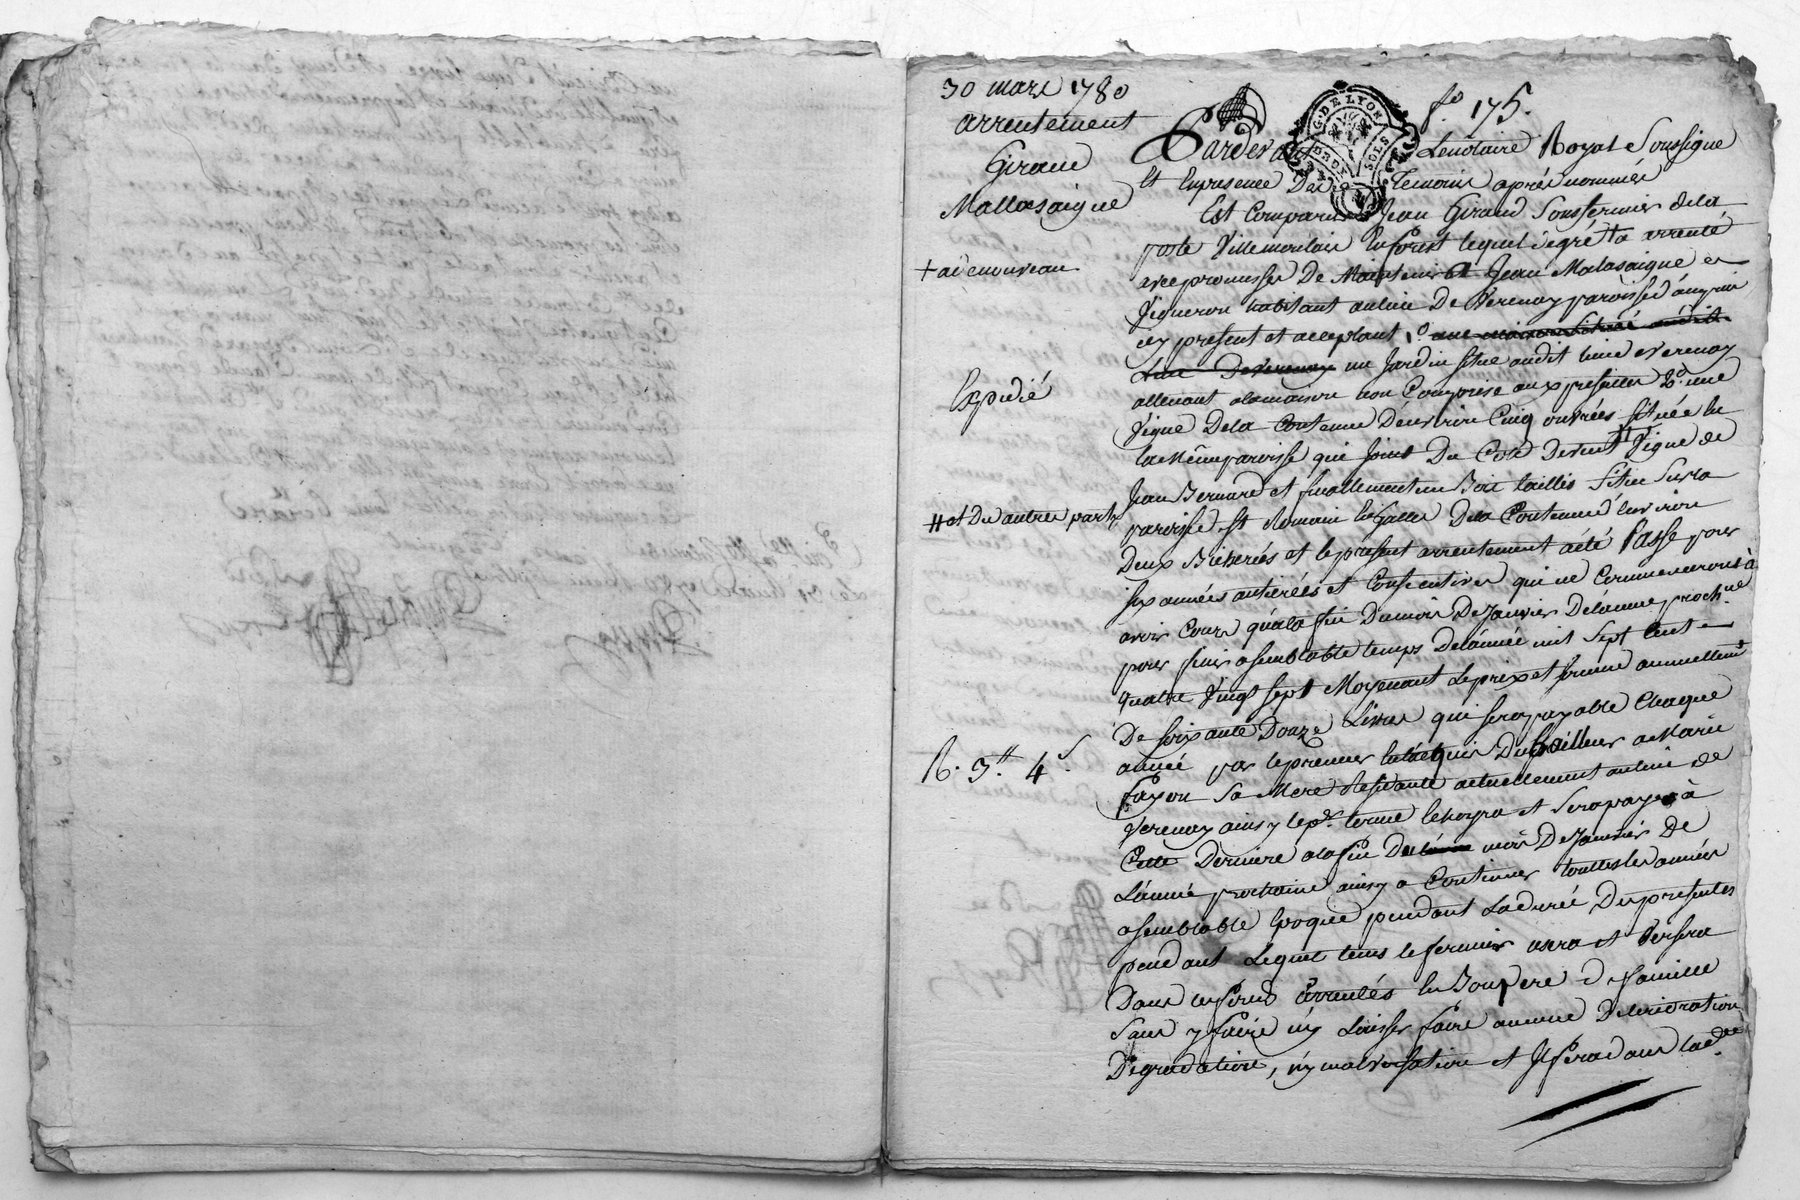 30 mars 1780
arrentement
Giraud
Mallasaigne
+ a de nouveau
Expedié
# et De autres parts
R. 3.tt 4.s
G. DE LYON
SOLS
f.o 175.
Pardevant Le notaire Royal Soussigné
Et En presence Des Temoins aprés nommés
Est Comparu Jean Giraud Sousfermier de la
poste Villemontais En forest lequel de gré + a arrenté
avec promesse De Maintenir a Jean Malasaigne
Vigneron habitant au lieu De Verenay paroisse d'ampuis
icy present et acceptant 1.o une maison Située audit
Lieu De Verenay un Jardin situé audit lieu Verenay
attenant a la maison non Comprise aux presentes 2.o une
Vigne De la Contenue D'environ Cinq ouvrées située En
la Même paroisse qui Joint Du Coté De vent # Vigne de
Jean Bernard et finallement un Bois taillis Situé Sur la
paroisse St Romain En Galle De la Contenue d'environ
Deux Bicherées et le present arrentement a été Passé pour
six années entiérées et Consecutives qui ne Commenceront à
avoir Cours qu'a la fin Du mois De Janvier De L'année proch.ne
pour finir a semblable temps De L'année mil Sept Cent
quatre Vingt sept Moyenant Le prix et ferme annuellemt
De Soixante Douze Livres qui sera payable Chaque
année par le preneur En l'acquis Du Bailleur a Marie
fayon Sa Mere residante actuellement au lieu de
Verenay ainsy le p.er terme Echoyra et Sera payé à
Cette Derniere a la fin Du mois De Janvier De
L'année prochaine ainsy a Continuer touttes les années
a semblable Epoque pendant La durée Des presentes
pendant Lequel tems le fermier usera et Versera
Dans les fonds arrentés En Bon pere de famille
Sans y faire ny Laisser faire aucune Deterioration
Degradation, ny malversation et Il sera dans la d.te